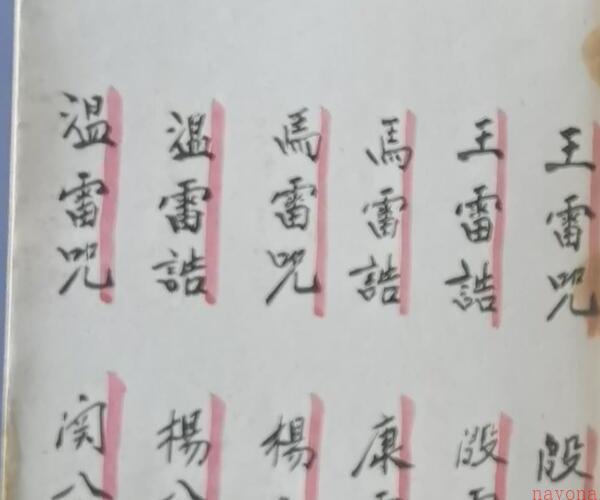 王雷咒
王雷誥
馬雷誥
馬雷咒
溫雷誥
溫雷咒
殷
殷
康
楊
楊
関
nayona